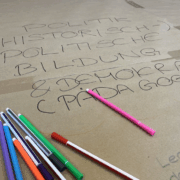 POLITIK
HISTORISCH
POLITISCHE
BILDUNG
& DEMOKRA
(PÄDAGOG
Ler